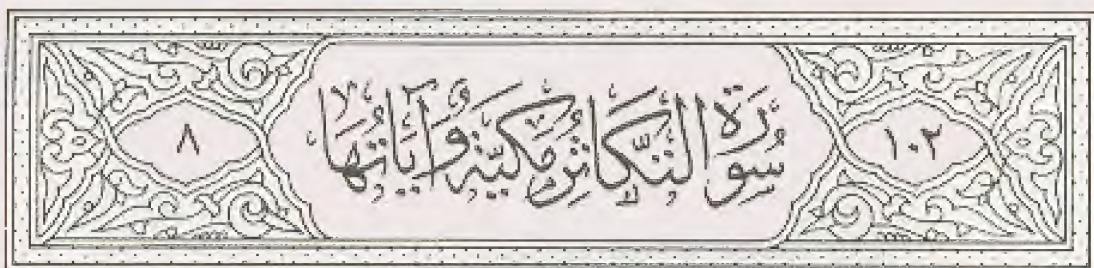 ١٠٢ سُورَةُ التَّكَاثُرِ مَكِّيَّة وَآيَاتُهَا ٨